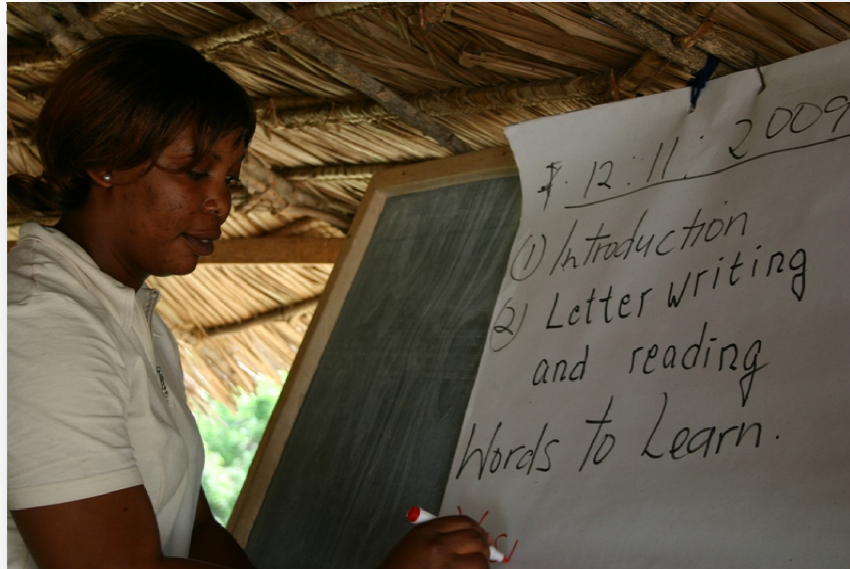 12:11:2009
(1) Introduction
(2) Letter writing
and reading
Words to Learn.